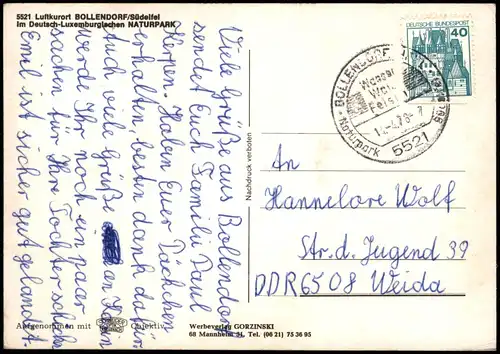 5521 Luftkurort BOLLENDORF/Südeifel
im Deutsch-Luxemburgischen NATURPARK
Viele Grüße aus Bollendorf
sendet Euch Familie Paul
Herpen. Haben Euer Päckchen
erhalten, besten dank dafür
auch viele Grüße an Hain
werde Ihr noch ein paar
sachen für Ihre Tochter schicken
Emil ist sicher gut gelandet.
Nachdruck verboten
DEUTSCHE BUNDESPOST
40
BOLLENDORF
Wasser
Wald
Felsen
Naturpark
5521
An
Hannelore Wolf
Str. d. Jugend 39
DDR 6508 Weida
Aufgenommen mit Objektiv
Werbeverlag GORZINSKI
68 Mannheim 51, Tel. (06 21) 75 36 95